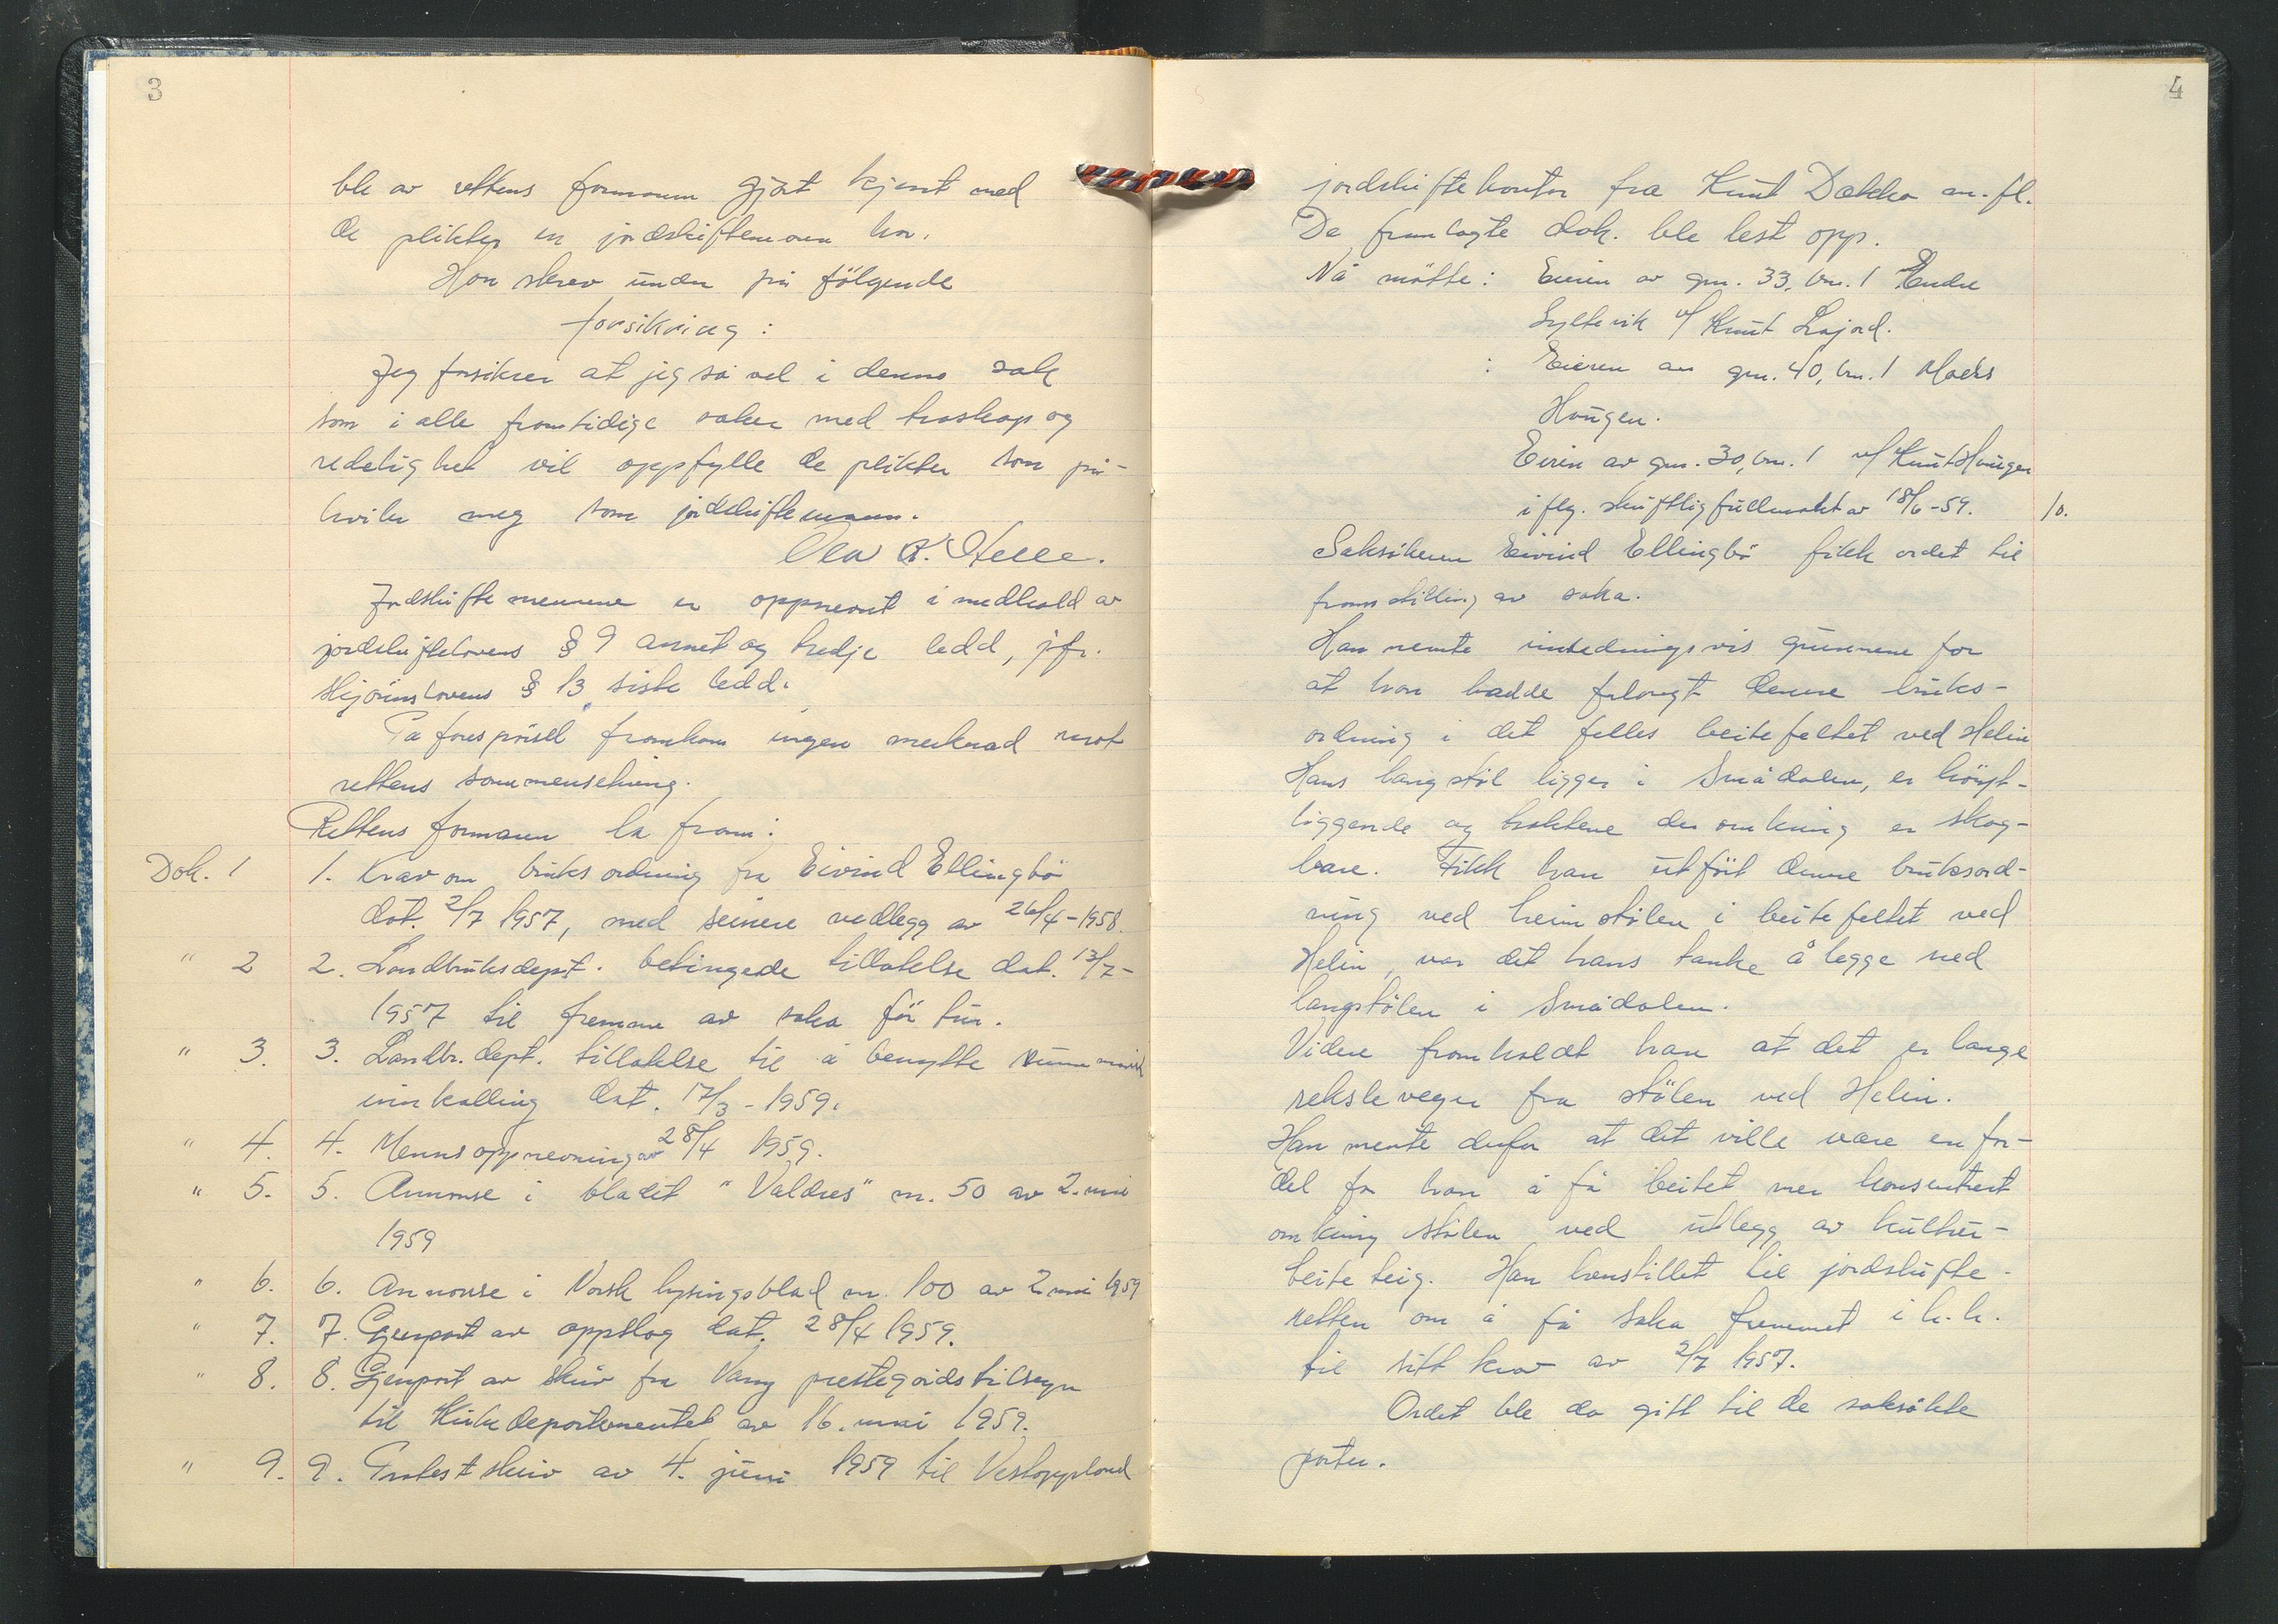 3
ble av rettens formann gjort kjent med
de plikter en jordskiftemann har.
Han skrev under på følgende
forsikring:
Jeg forsikrer at jeg så vel i denne sak
som i alle framtidige saker med troskap og
redelighet vil oppfylle de plikter som på-
hviler meg som jordskiftemann.
Ola K. Helle.
Jordskiftemennene er oppnevnt i medhold av
jordskiftelovens § 9 annet og tredje ledd, jfr.
skjønnslovens § 13 siste ledd.
På forespørsel framkom ingen merknad mot
rettens sammensetning.
Rettens formann la fram:
Dok. 1 1. Krav om bruksordning fra Eivind Ellingbø
dat. 2/7 1957, med seinere vedlegg av 26/4-1958.
" 2 2. Landbruksdept. betingede tillatelse dat. 13/7-
1957 til fremme av saka før tur.
" 3. 3. Landbr.dept. tillatelse til å benytte summarisk
innkalling dat. 17/3-1959.
" 4. 4. Mennsoppnevning av 28/4 1959.
" 5. 5. Annonse i bladet "Valdres" nr. 50 av 2. mai
1959
" 6. 6. Annonse i Norsk lysingsblad nr. 100 av 2. mai 1959
" 7. 7. Gjenpart av oppslag dat. 28/4 1959.
" 8. 8. Gjenpart av skriv fra Vang prestegårdstilsyn
til Kirkedepartementet av 16. mai 1959.
" 9. 9. Protestskriv av 4. juni 1959 til Vestoppland
4
jordskiftekontor fra Knut Dokka m.fl.
De framlagte dok. ble lest opp.
Nå møtte: Eieren av gnr. 33, bnr. 1 Endre
Syltevik v/ Knut Lajord.
: Eieren av gnr. 40, bnr. 1 Mads
Haugen.
Eieren av gnr. 30, bnr. 1 v/ Knut Haugen
iflg. skriftlig fullmakt av 18/6-59. 10.
Saksøkeren Eivind Ellingbø fikk ordet til
framstilling av saka.
Han nemte innledningsvis grunnene for
at han hadde forlangt denne bruks-
ordning i det felles beitefeltet ved Helin
Hans langstøl ligger i Smådalen, er høigt-
liggende og traktene der omkring er skog-
bare. Fikk han utført denne bruksord-
ning ved heimstølen i beitefeltet ved
Helin, var det hans tanke å legge ned
langstølen i Smådalen.
Videre framholdt han at det er lange
reksleveger fra stølen ved Helin.
Han mente derfor at det ville være en for-
del for han å få beitet mer konsentrert
omkring stølen ved utlegg av kultur-
beiteteig. Han henstillet til jordskifte-
retten om å få saka fremmet i h.h.
til sitt krav av 2/7 1957.
Ordet ble da gitt til de saksøkte
parter.